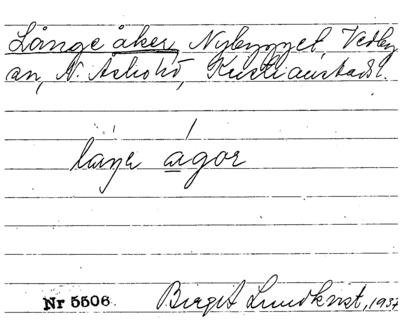 Långe åker, Nybygget, Vedby
sn, N. Åsbo hd, Kristianstads l.
låŋa ågor
Nr 5506. Birgit Lundkvist, 1937